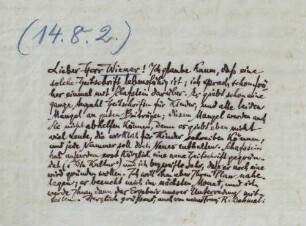 (14.8.2.)
Lieber Herr Wiener! Ich glaube kaum, daß eine
solche Zeitschrift lebensfähig ist; ich sprach schon früher
einmal mit Schafstein darüber. Es giebt schon eine
ganze Anzahl Zeitschriften für Kinder, und alle leiden
Mangel an guten Beiträgen; diesem Mangel werden auch
Sie nicht abhelfen können, denn es giebt eben nicht
viel Leute, die wirklich für Kinder schreiben können,
und jede Nummer soll doch Neues enthalten. Schafstein
hat außerdem erst kürzlich eine neue Zeitschrift gegründet
("Die Kultur") und ich
wird gründen wollen. Ich will ihm aber Ihren Plan nahe
legen; er besucht mich im nächsten Monat, und ich
werde Ihnen dann das Ergebnis unserer Unterredung mit-
teilen. Herzlich grüßend, auch von meiner Frau R. Dehmel.